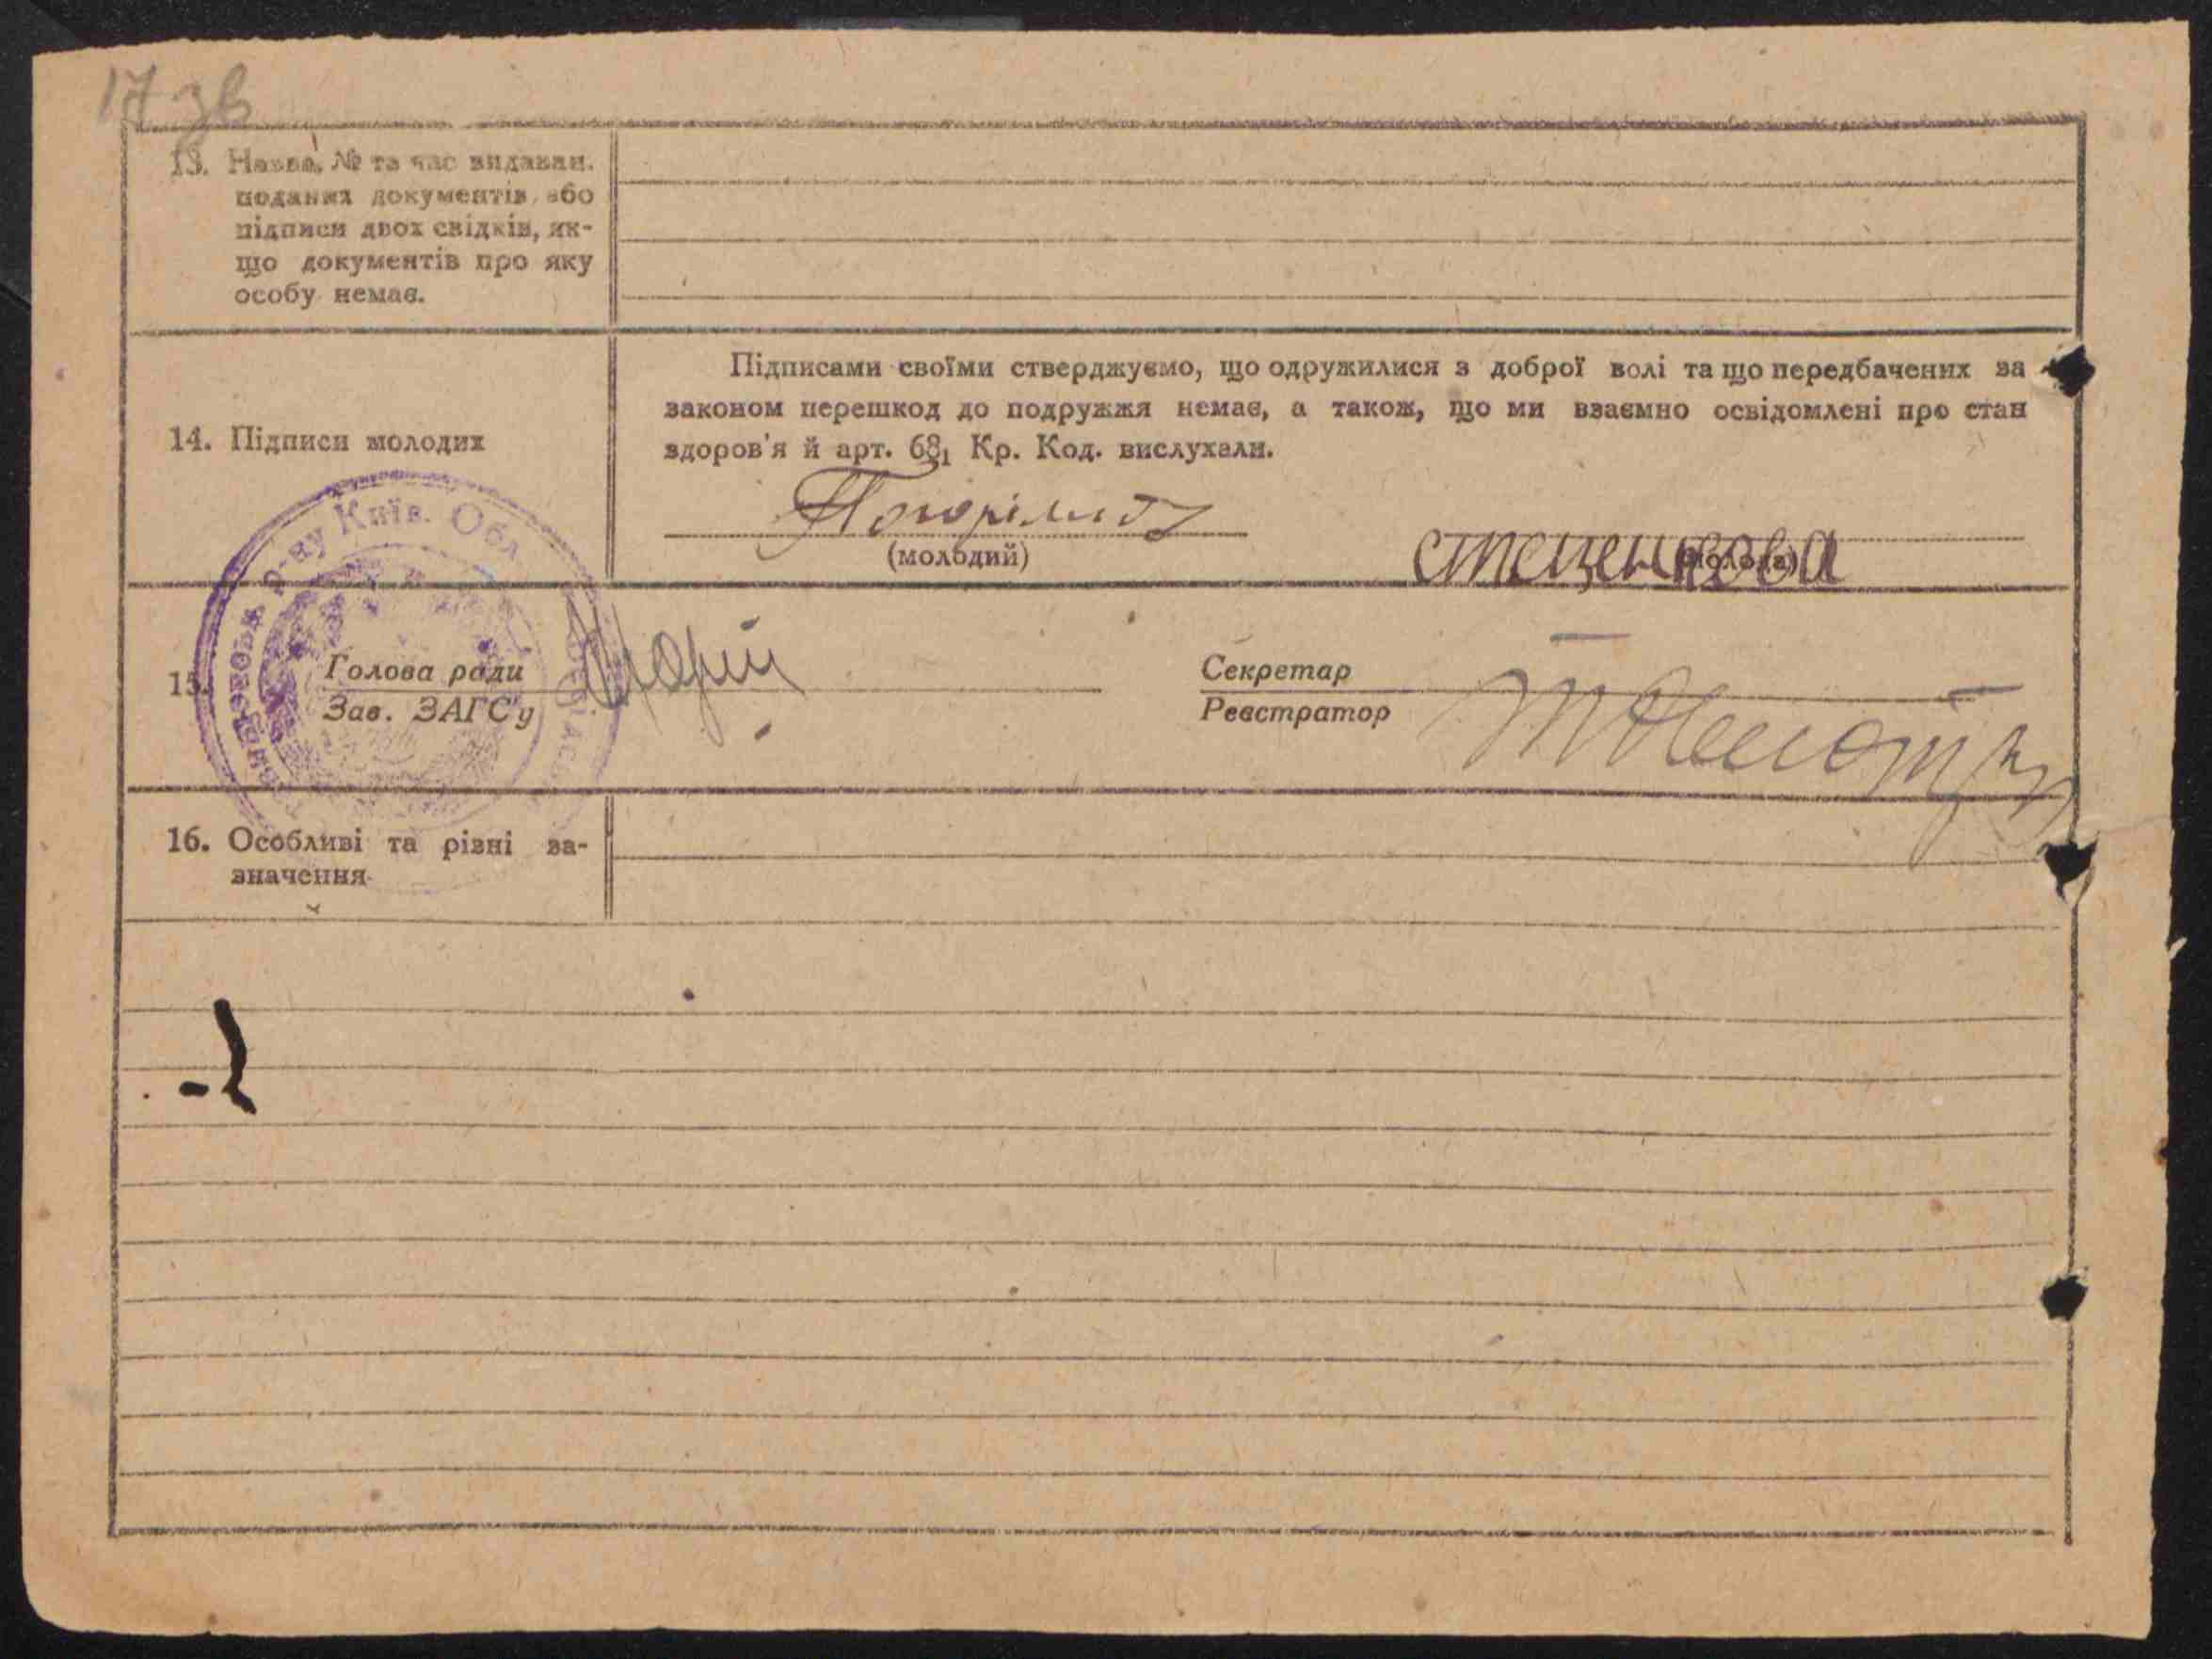 17 зв
13. Назва, № та час видаван.
подання документів, або
підписи двох свідків, як-
що документів про яку
особу немає.
14. Підписи молодих
Підписами своїми стверджуємо, що одружилися з доброї волі та що передбачених за
законом перешкод до подружжя немає, а також, що ми взаємно освідомлені про стан
здоров'я й арт. 68₁ Кр. Код. вислухали.
(молодий)
стаценкова
(молода)
р-ну Київ. Обл
15.
Голова ради
Зав. ЗАГС'у
Секретар
Реєстратор
16. Особливі та різні за-
значення